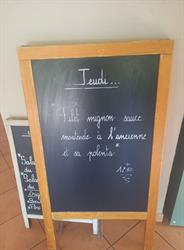 Jeudi...
"Filet mignon sauce
moutarde à l'ancienne
et sa polenta"
Salade
du